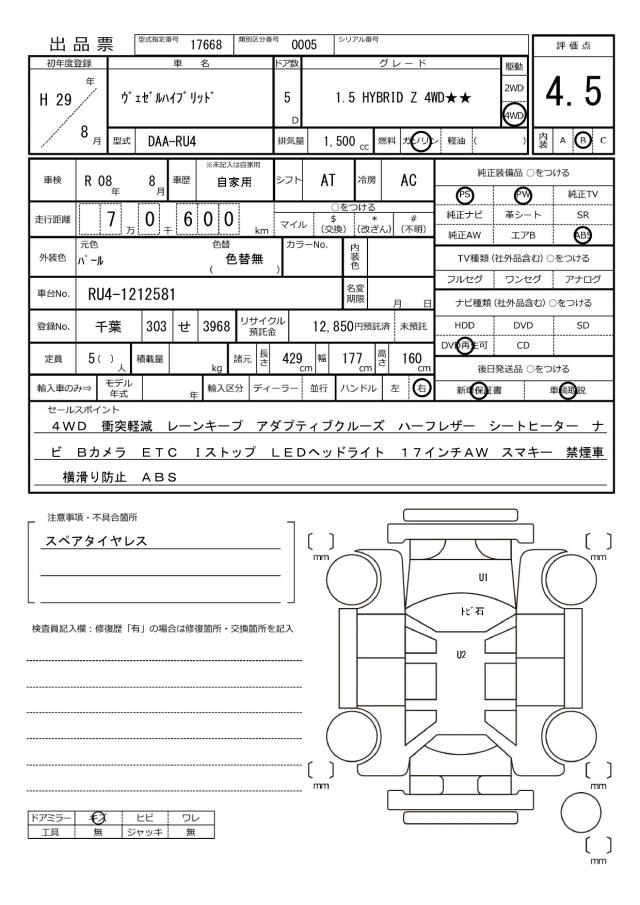 出品票
型式指定番号 17668 類別区分番号 0005 シリアル番号
評価点
4.5
初年度登録 車名 ドア数 グレード 駆動
H 29 年 8 月
ヴェゼルハイブリッド
5 D
1.5 HYBRID Z 4WD★★
2WD
4WD
型式 DAA-RU4 排気量 1,500 cc 燃料 ガソリン 軽油 ( )
内装 A B C
車検 R 08 年 8 月 車歴 ※未記入は自家用 自家用 シフト AT 冷房 AC
走行距離 7 万 0 千 6 0 0 km
○をつける
マイル $(交換) *(改ざん) #(不明)
外装色 元色 パール 色替 色替無 ( ) カラーNo. 内装色
車台No. RU4-1212581 名変期限 月 日
登録No. 千葉 303 せ 3968 リサイクル預託金 12,850円預託済 未預託
定員 5 ( ) 人 積載量 kg 諸元 長さ 429 cm 幅 177 cm 高さ 160 cm
輸入車のみ⇒ モデル年式 年 輸入区分 ディーラー 並行 ハンドル 左 右
純正装備品 ○をつける
PS PW 純正TV
純正ナビ 革シート SR
純正AW エアB ABS
TV種類(社外品含む)○をつける
フルセグ ワンセグ アナログ
ナビ種類(社外品含む)○をつける
HDD DVD SD
DVD再生可 CD
後日発送品 ○をつける
新車保証書 車輌取説
セールスポイント
4WD 衝突軽減 レーンキープ アダプティブクルーズ ハーフレザー シートヒーター ナ
ビ Bカメラ ETC Iストップ LEDヘッドライト 17インチAW スマキー 禁煙車
横滑り防止 ABS
注意事項・不具合箇所
スペアタイヤレス
検査員記入欄：修復歴「有」の場合は修復箇所・交換箇所を記入
〔 〕mm
〔 〕mm
U1
トビ石
U2
〔 〕mm
〔 〕mm
〔 〕mm
ドアミラー キズ ヒビ ワレ
工具 無 ジャッキ 無